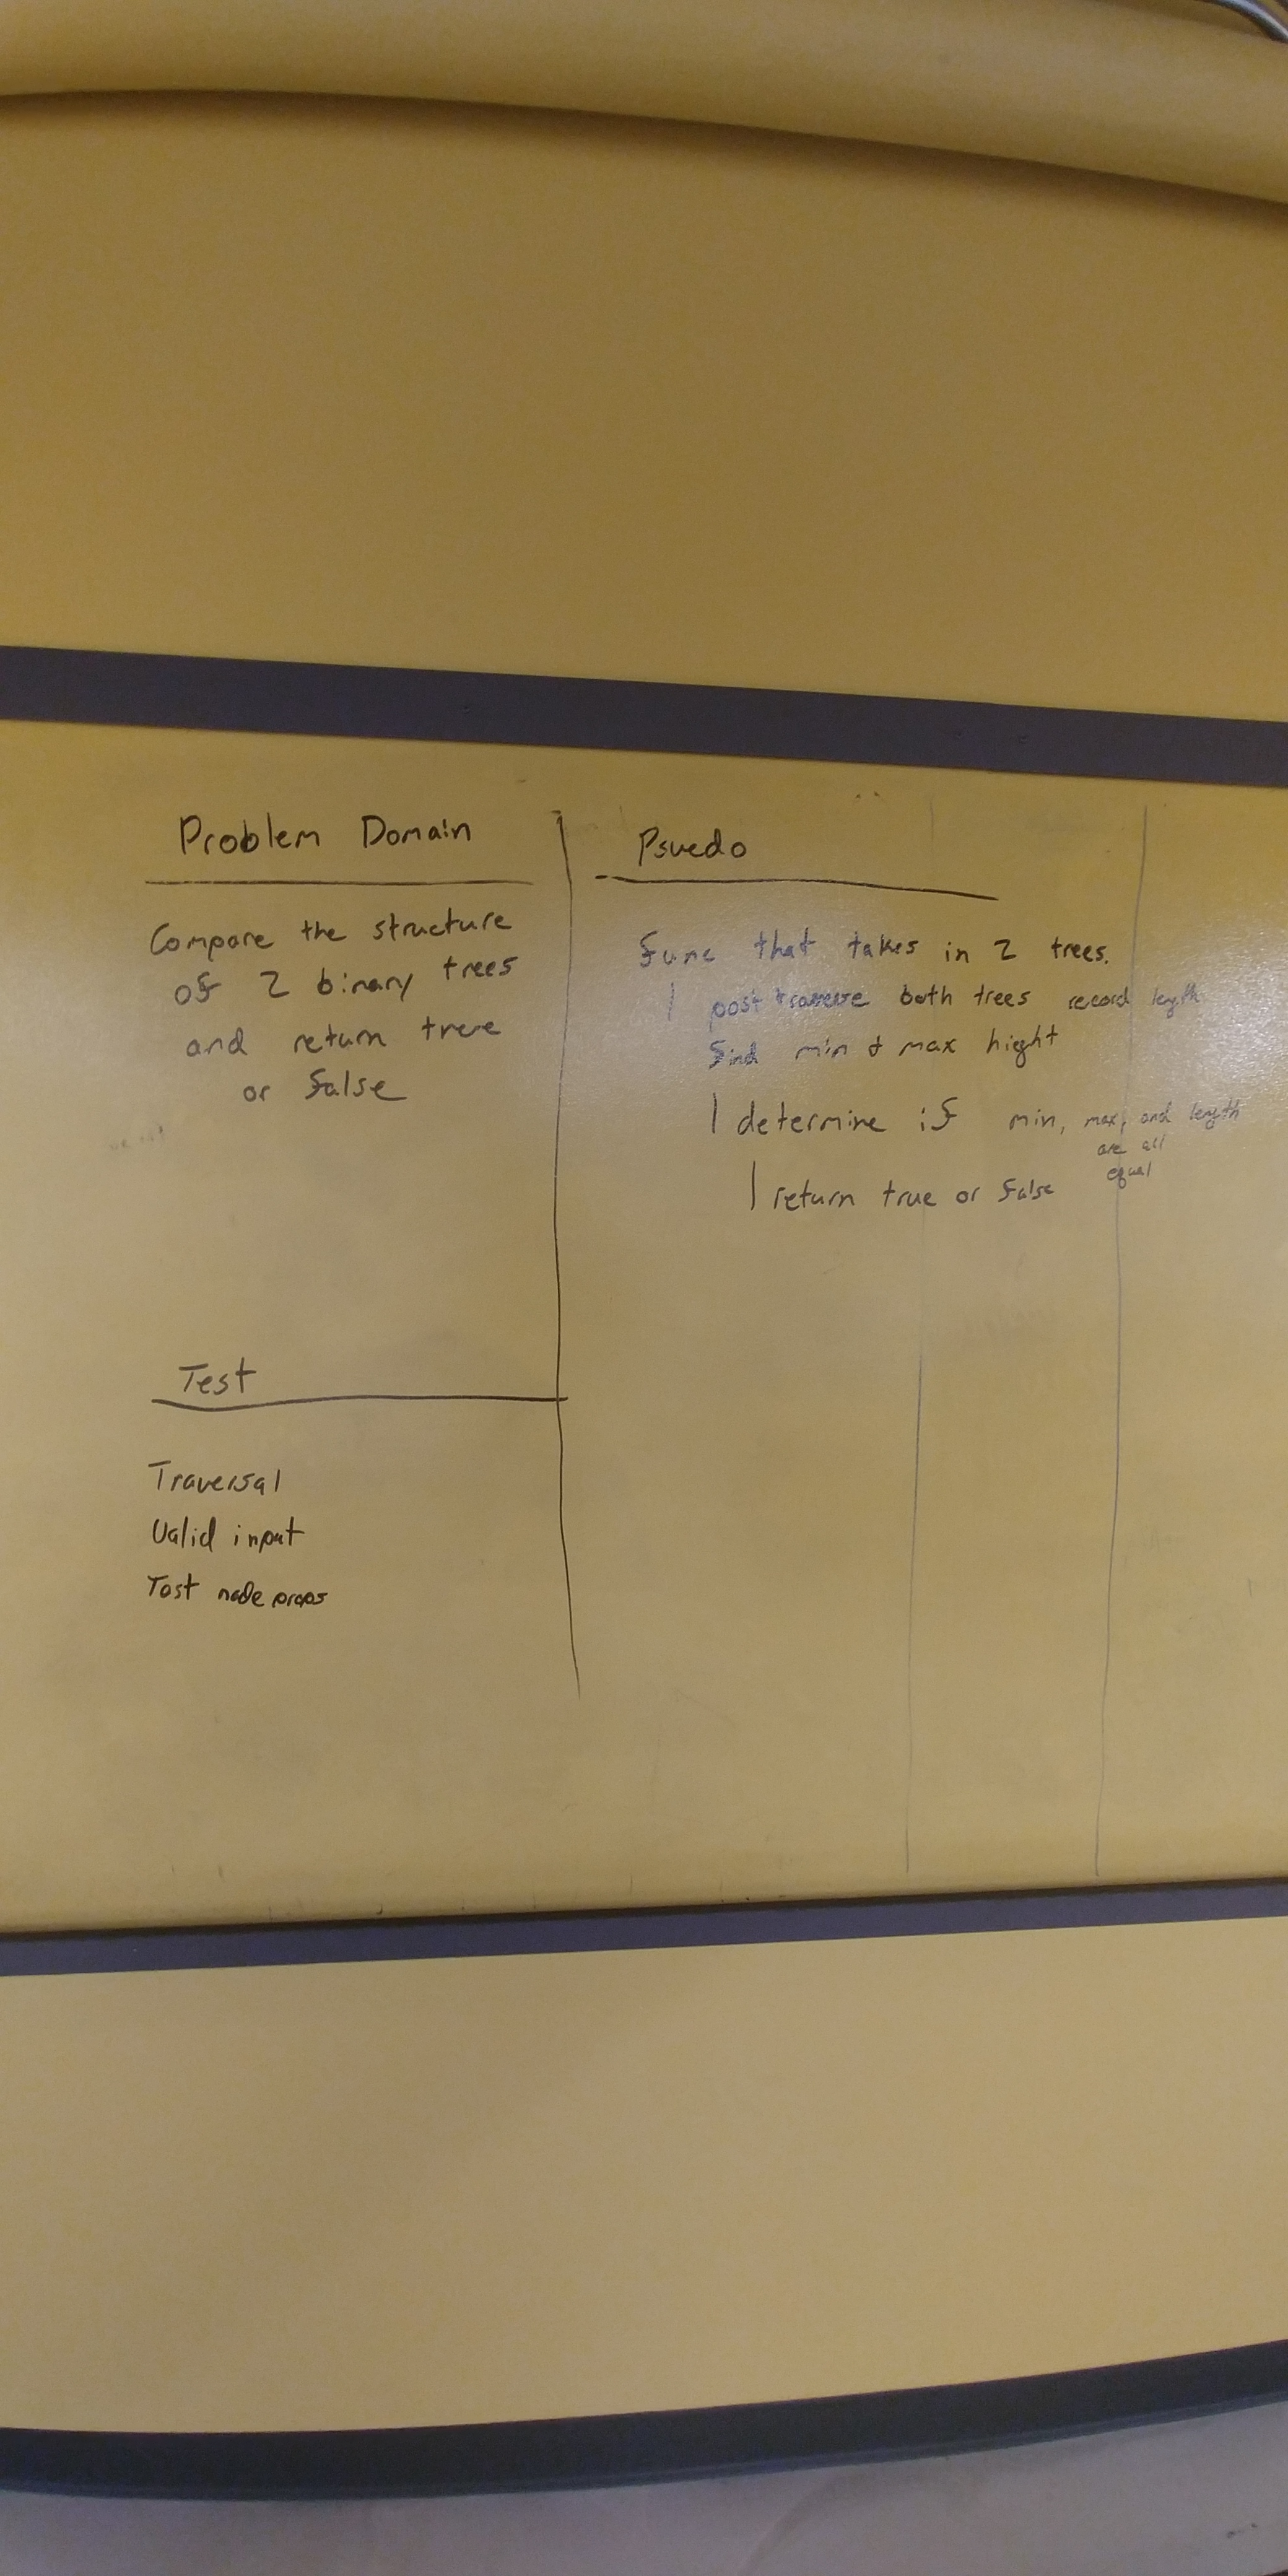 Problem Domain
Compare the structure
of 2 binary trees
and return treue
or false
Test
Traversal
Valid input
Test node props
Psuedo
func that takes in 2 trees.
| post traverse both trees record length
find min & max hight
| determine if min, max, and length
are all
equal
| return true or false